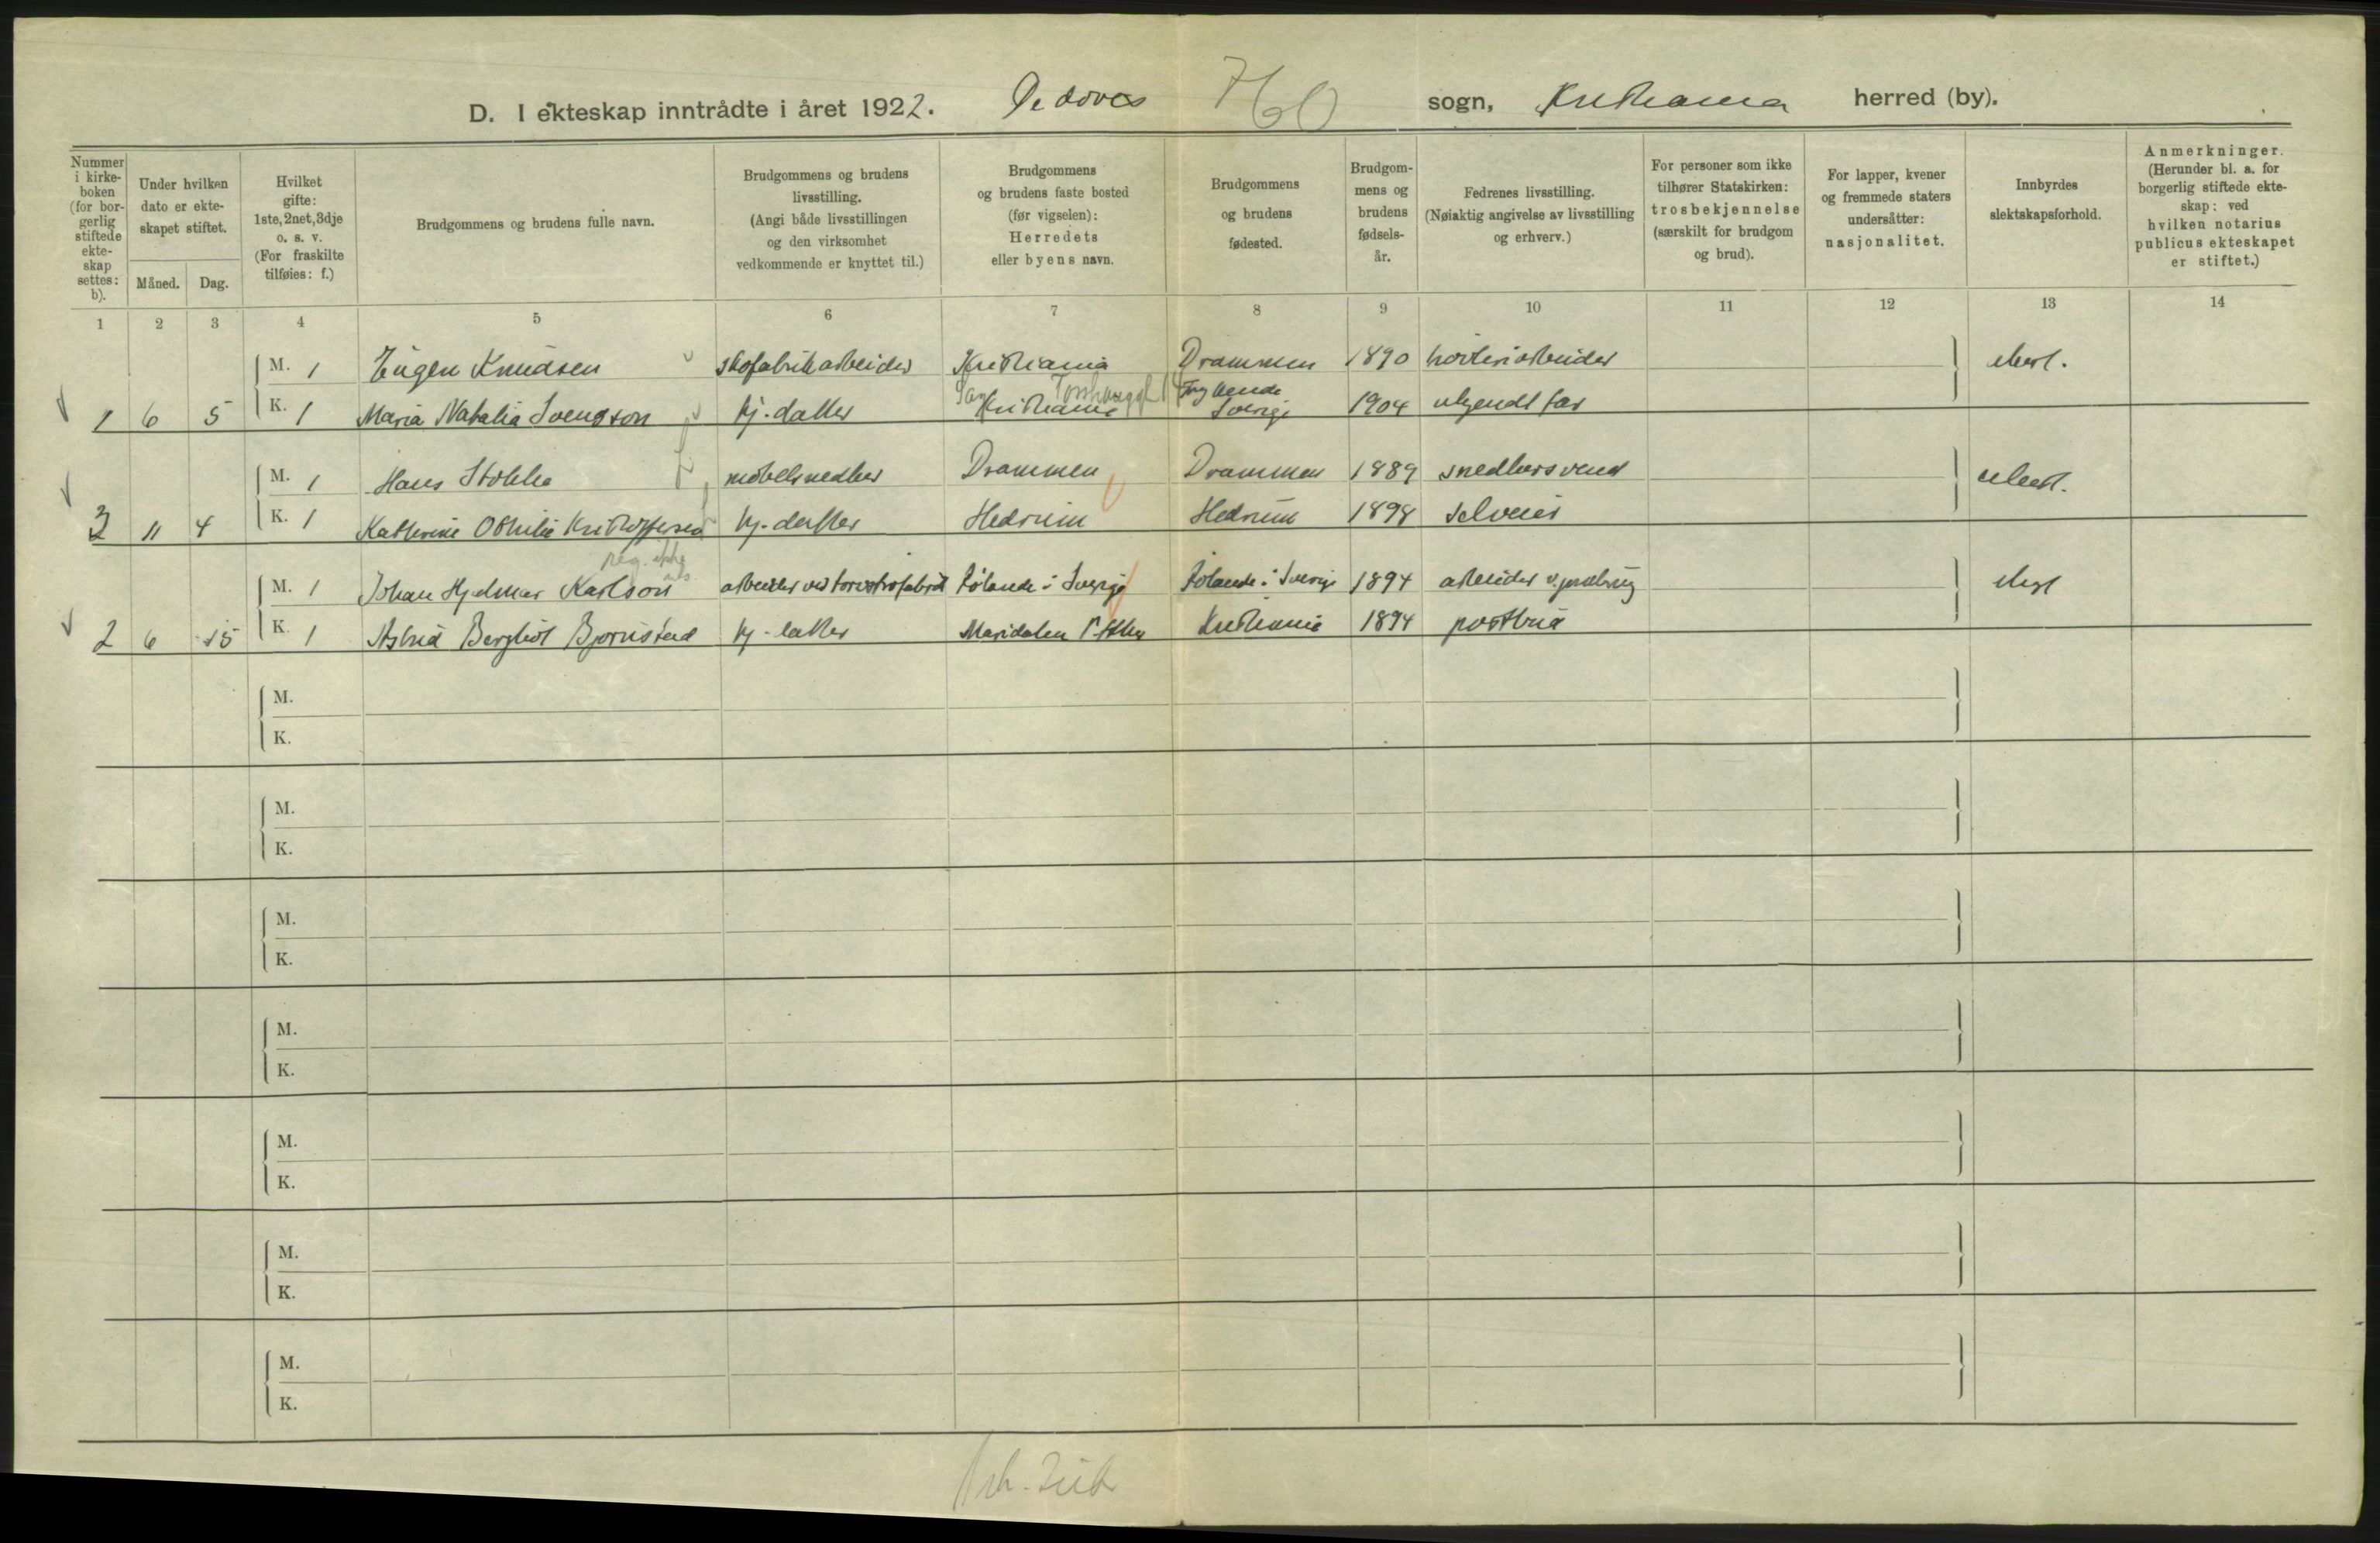 D. I ekteskap inntrådte i året 1922. De døves 760 sogn, Kristiania herred (by).
Nummer i kirkeboken (for borgerlig stiftede ekteskap settes: b).
Under hvilken dato er ekteskapet stiftet.
Måned. Dag.
Hvilket gifte: 1ste, 2net, 3dje o. s. v. (For fraskilte tilføies: f.)
Brudgommens og brudens fulle navn.
Brudgommens og brudens livsstilling. (Angi både livsstillingen og den virksomhet vedkommende er knyttet til.)
Brudgommens og brudens faste bosted (før vigselen): Herredets eller byens navn.
Brudgommens og brudens fødested.
Brudgommens og brudens fødselsår.
Fedrenes livsstilling. (Nøiaktig angivelse av livsstilling og erhverv.)
For personer som ikke tilhører Statskirken: trosbekjennelse (særskilt for brudgom og brud).
For lapper, kvener og fremmede staters undersåtter: nasjonalitet.
Innbyrdes slektskapsforhold.
Anmerkninger. (Herunder bl. a. for borgerlig stiftede ekteskap: ved hvilken notarius publicus ekteskapet er stiftet.)
1 2 3 4 5 6 7 8 9 10 11 12 13 14
M. 1 Eugen Knudsen skofabrikarbeider Kristiania Drammen 1890 ubesl.
1 6 5 K. 1 Maria Natalia Svendson hj. datter Kristiania Sverige 1904 ukjendt far
M. 1 Hans Stokke møbelsnedker Drammen Drammen 1889 snedkersvend ubesl.
3 11 4 K. 1 Katherine Othilie Kristoffersen hj. datter Hedrum Hedrum 1898 selveier
reg. ikke
M. 1 Johan Hjalmar Karlson arbeider ved torvstrøfabrik i Sverige i Sverige 1894 arbeider v. ubesl
2 6 15 K. 1 Astrid Bergliot Bjørnstad hj. datter Maridalen V. Aker Kristiania 1894 postbud
M.
K.
M.
K.
M.
K.
M.
K.
M.
K.
M.
K.
M.
K.